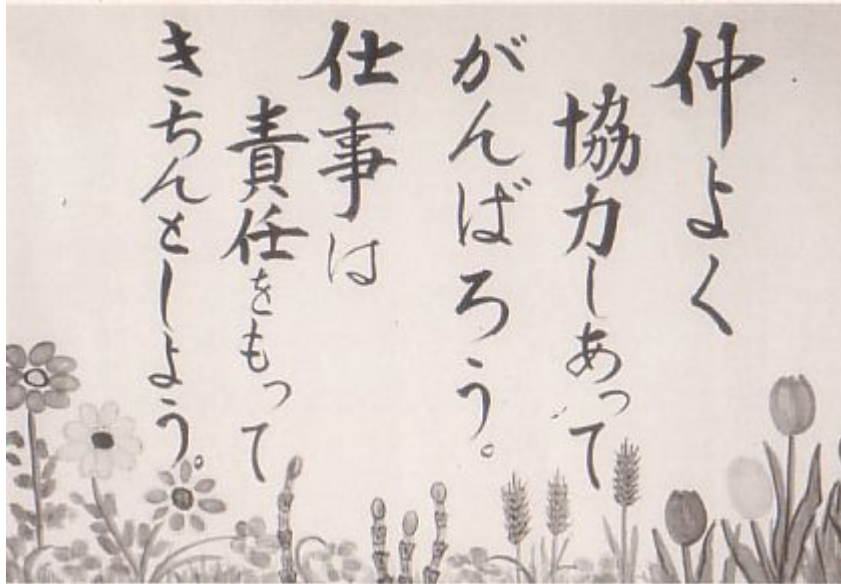 仲よく
協力しあって
がんばろう。
仕事は
責任をもって
きちんとしよう。